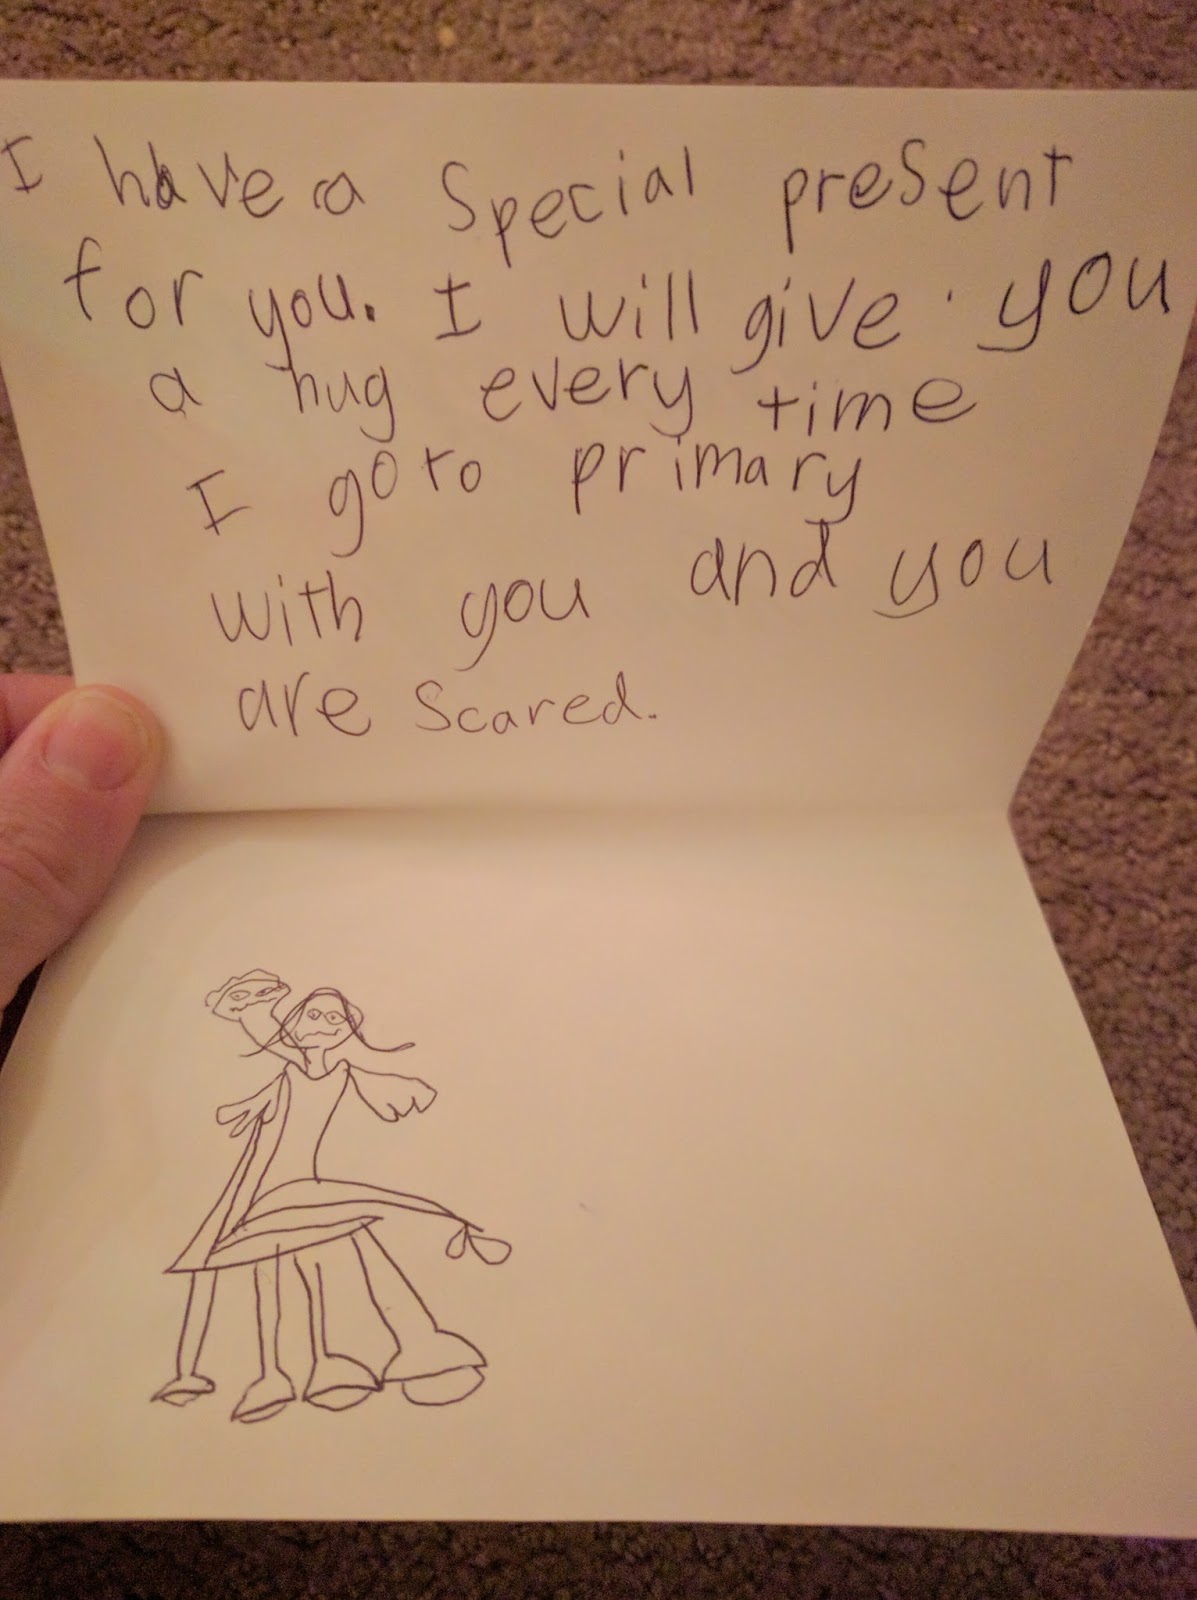 I have a special present
for you. I will give you
a hug every time
I go to primary
with you and you
are scared.